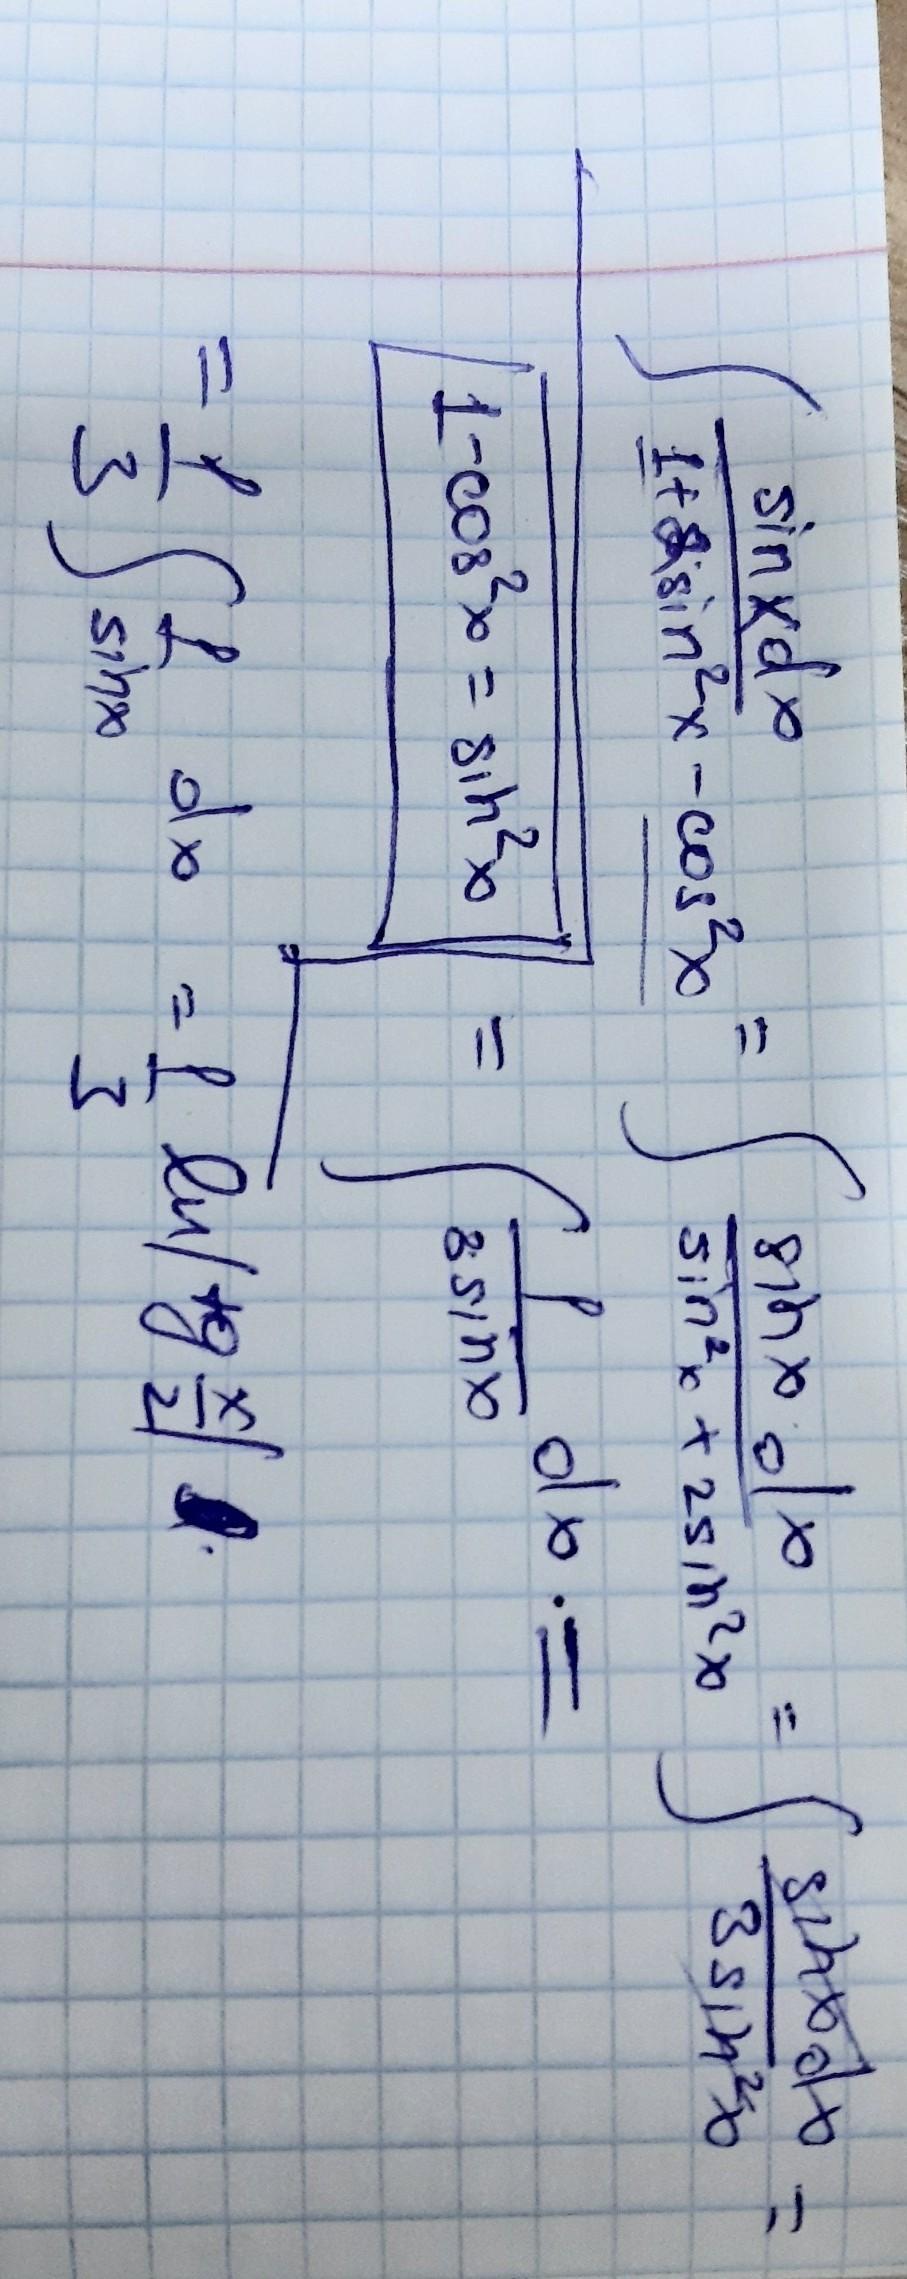 ∫ sin x dx / (1 + 2 sin²x - cos²x) = ∫ sin x dx / (sin²x + 2 sin²x) = ∫ sin x dx / (3 sin²x) =
1 - cos²x = sin²x = ∫ 1 / (3 sin x) dx =
= 1/3 ∫ 1 / sin x dx = 1/3 ln |tg x/2|